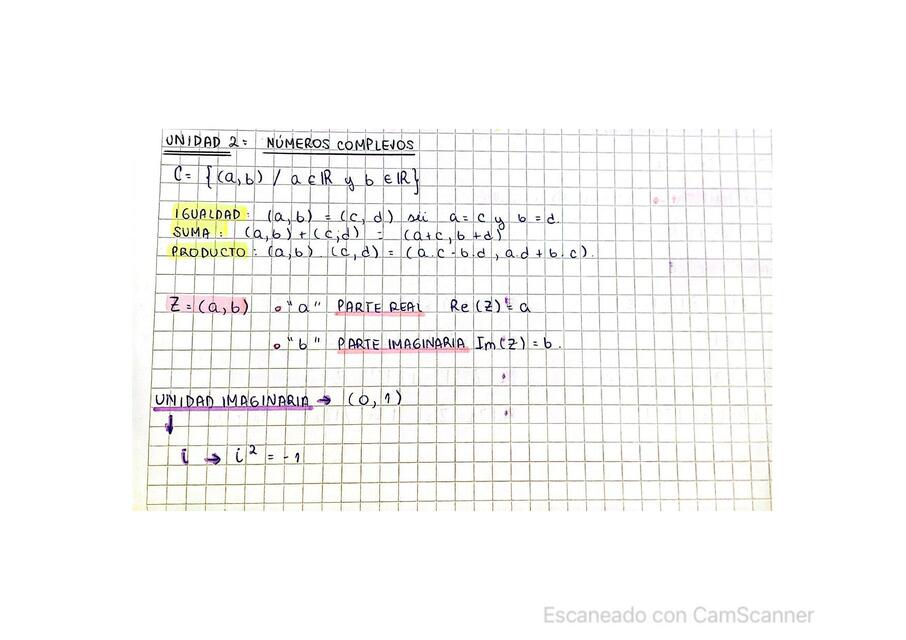 UNIDAD 2: NÚMEROS COMPLEJOS
C = {(a,b) / a ∈ IR y b ∈ IR}
IGUALDAD: (a,b) = (c,d) sii a = c y b = d.
SUMA: (a,b) + (c,d) = (a+c, b+d)
PRODUCTO: (a,b) . (c,d) = (a.c - b.d, a.d + b.c).
Z = (a,b) • "a" PARTE REAL Re(Z) = a
• "b" PARTE IMAGINARIA Im(Z) = b.
UNIDAD IMAGINARIA → (0,1)
↓
i → i² = -1
Escaneado con CamScanner